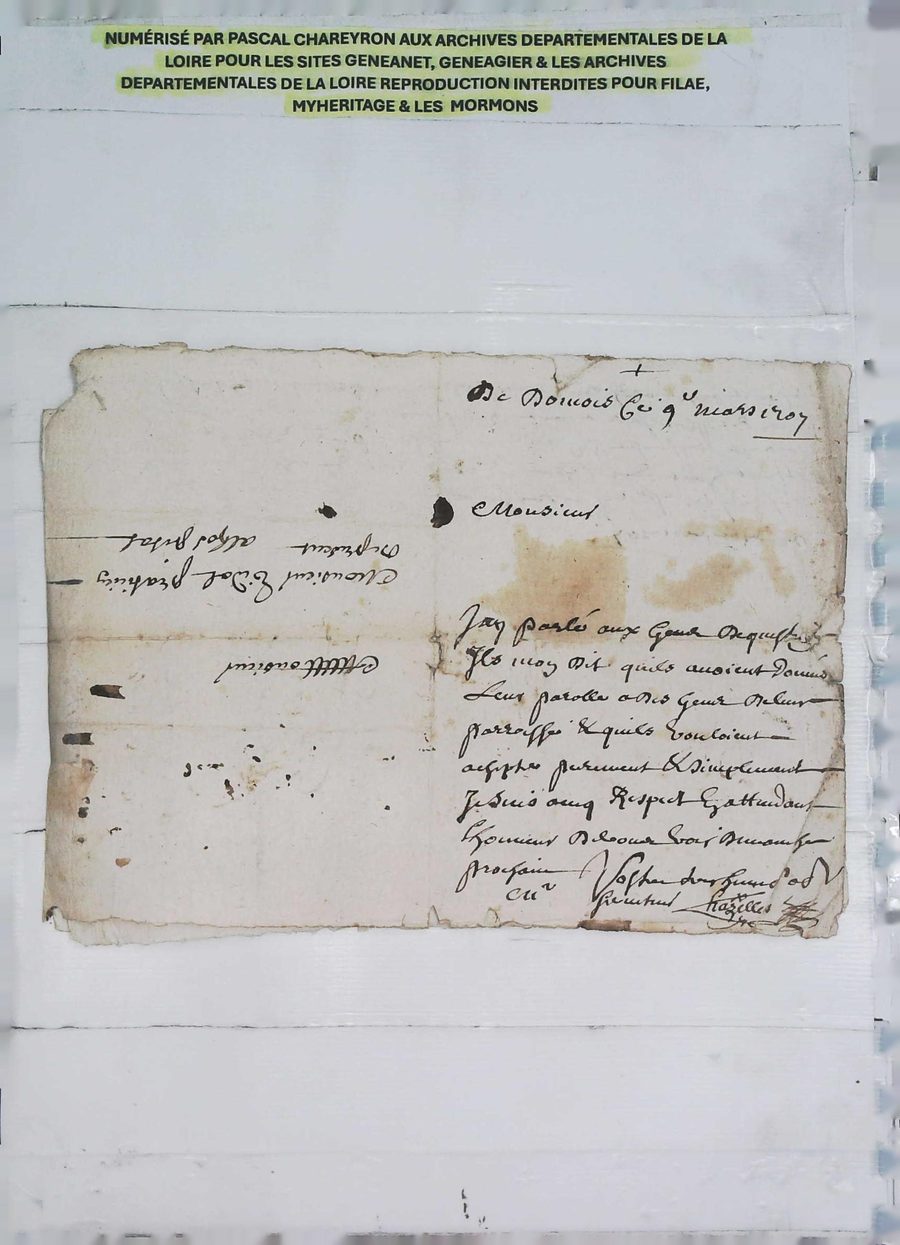 NUMÉRISÉ PAR PASCAL CHAREYRON AUX ARCHIVES DEPARTEMENTALES DE LA
LOIRE POUR LES SITES GENEANET, GENEAGIER & LES ARCHIVES
DEPARTEMENTALES DE LA LOIRE REPRODUCTION INTERDITES POUR FILAE,
MYHERITAGE & LES MORMONS
De Ce 9e mars 1707
Monsieur
Jay parlé aux Gens
Ils mon dit quils auoient donné
Leur parolle a des Gens deleur
parroisse & quils vouloient
purement & simplement
Je suis auec Respect En attendant
Lhonneur de vous voir dimanche
prochain Vostre tres humble
seruiteur Chazelles
Monsieur
Monsieur Vidal praticien
de present